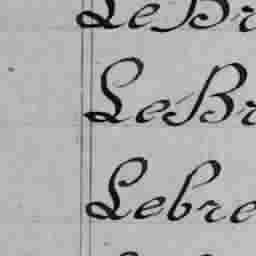 LeBr
LeBr
Lebre